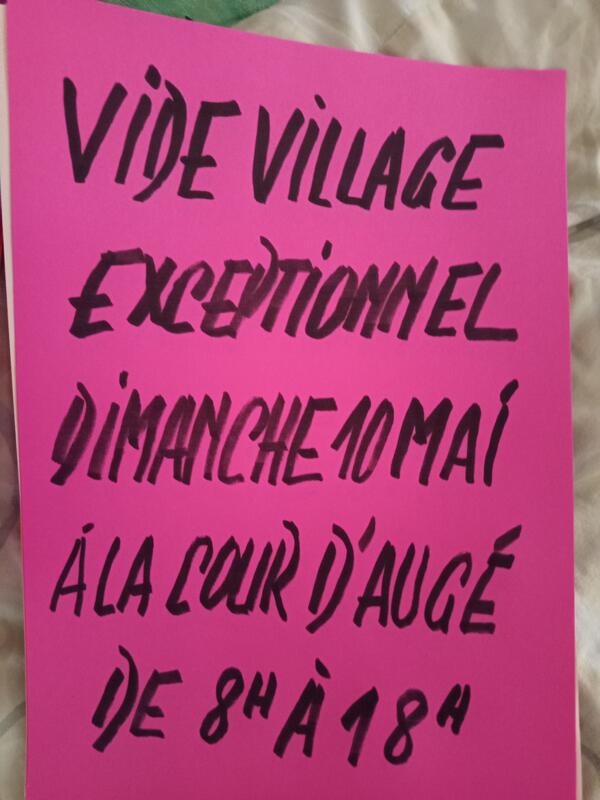 ViDE ViLLAGE
EXCEPTiONNEL
DiMANCHE 10 MAi
À LA COUR D'AUGÉ
DE 8H À 18H